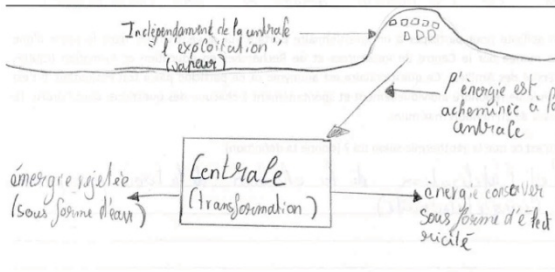 Indépendament de la centrale
"l'exploitation"
(vapeur)
l'énergie est
acheminée à la
centrale
Centrale
(transformation)
énergie rejetée
(sous forme d'eau)
énergie conserver
sous forme d'élect
ricité